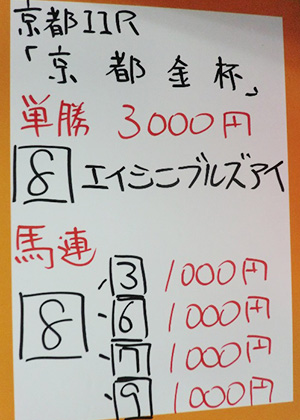 京都11R
「京都金杯」
単勝 3000円
8 エイシンブルズアイ
馬連
8
・3 1000円
・6 1000円
・7 1000円
・9 1000円